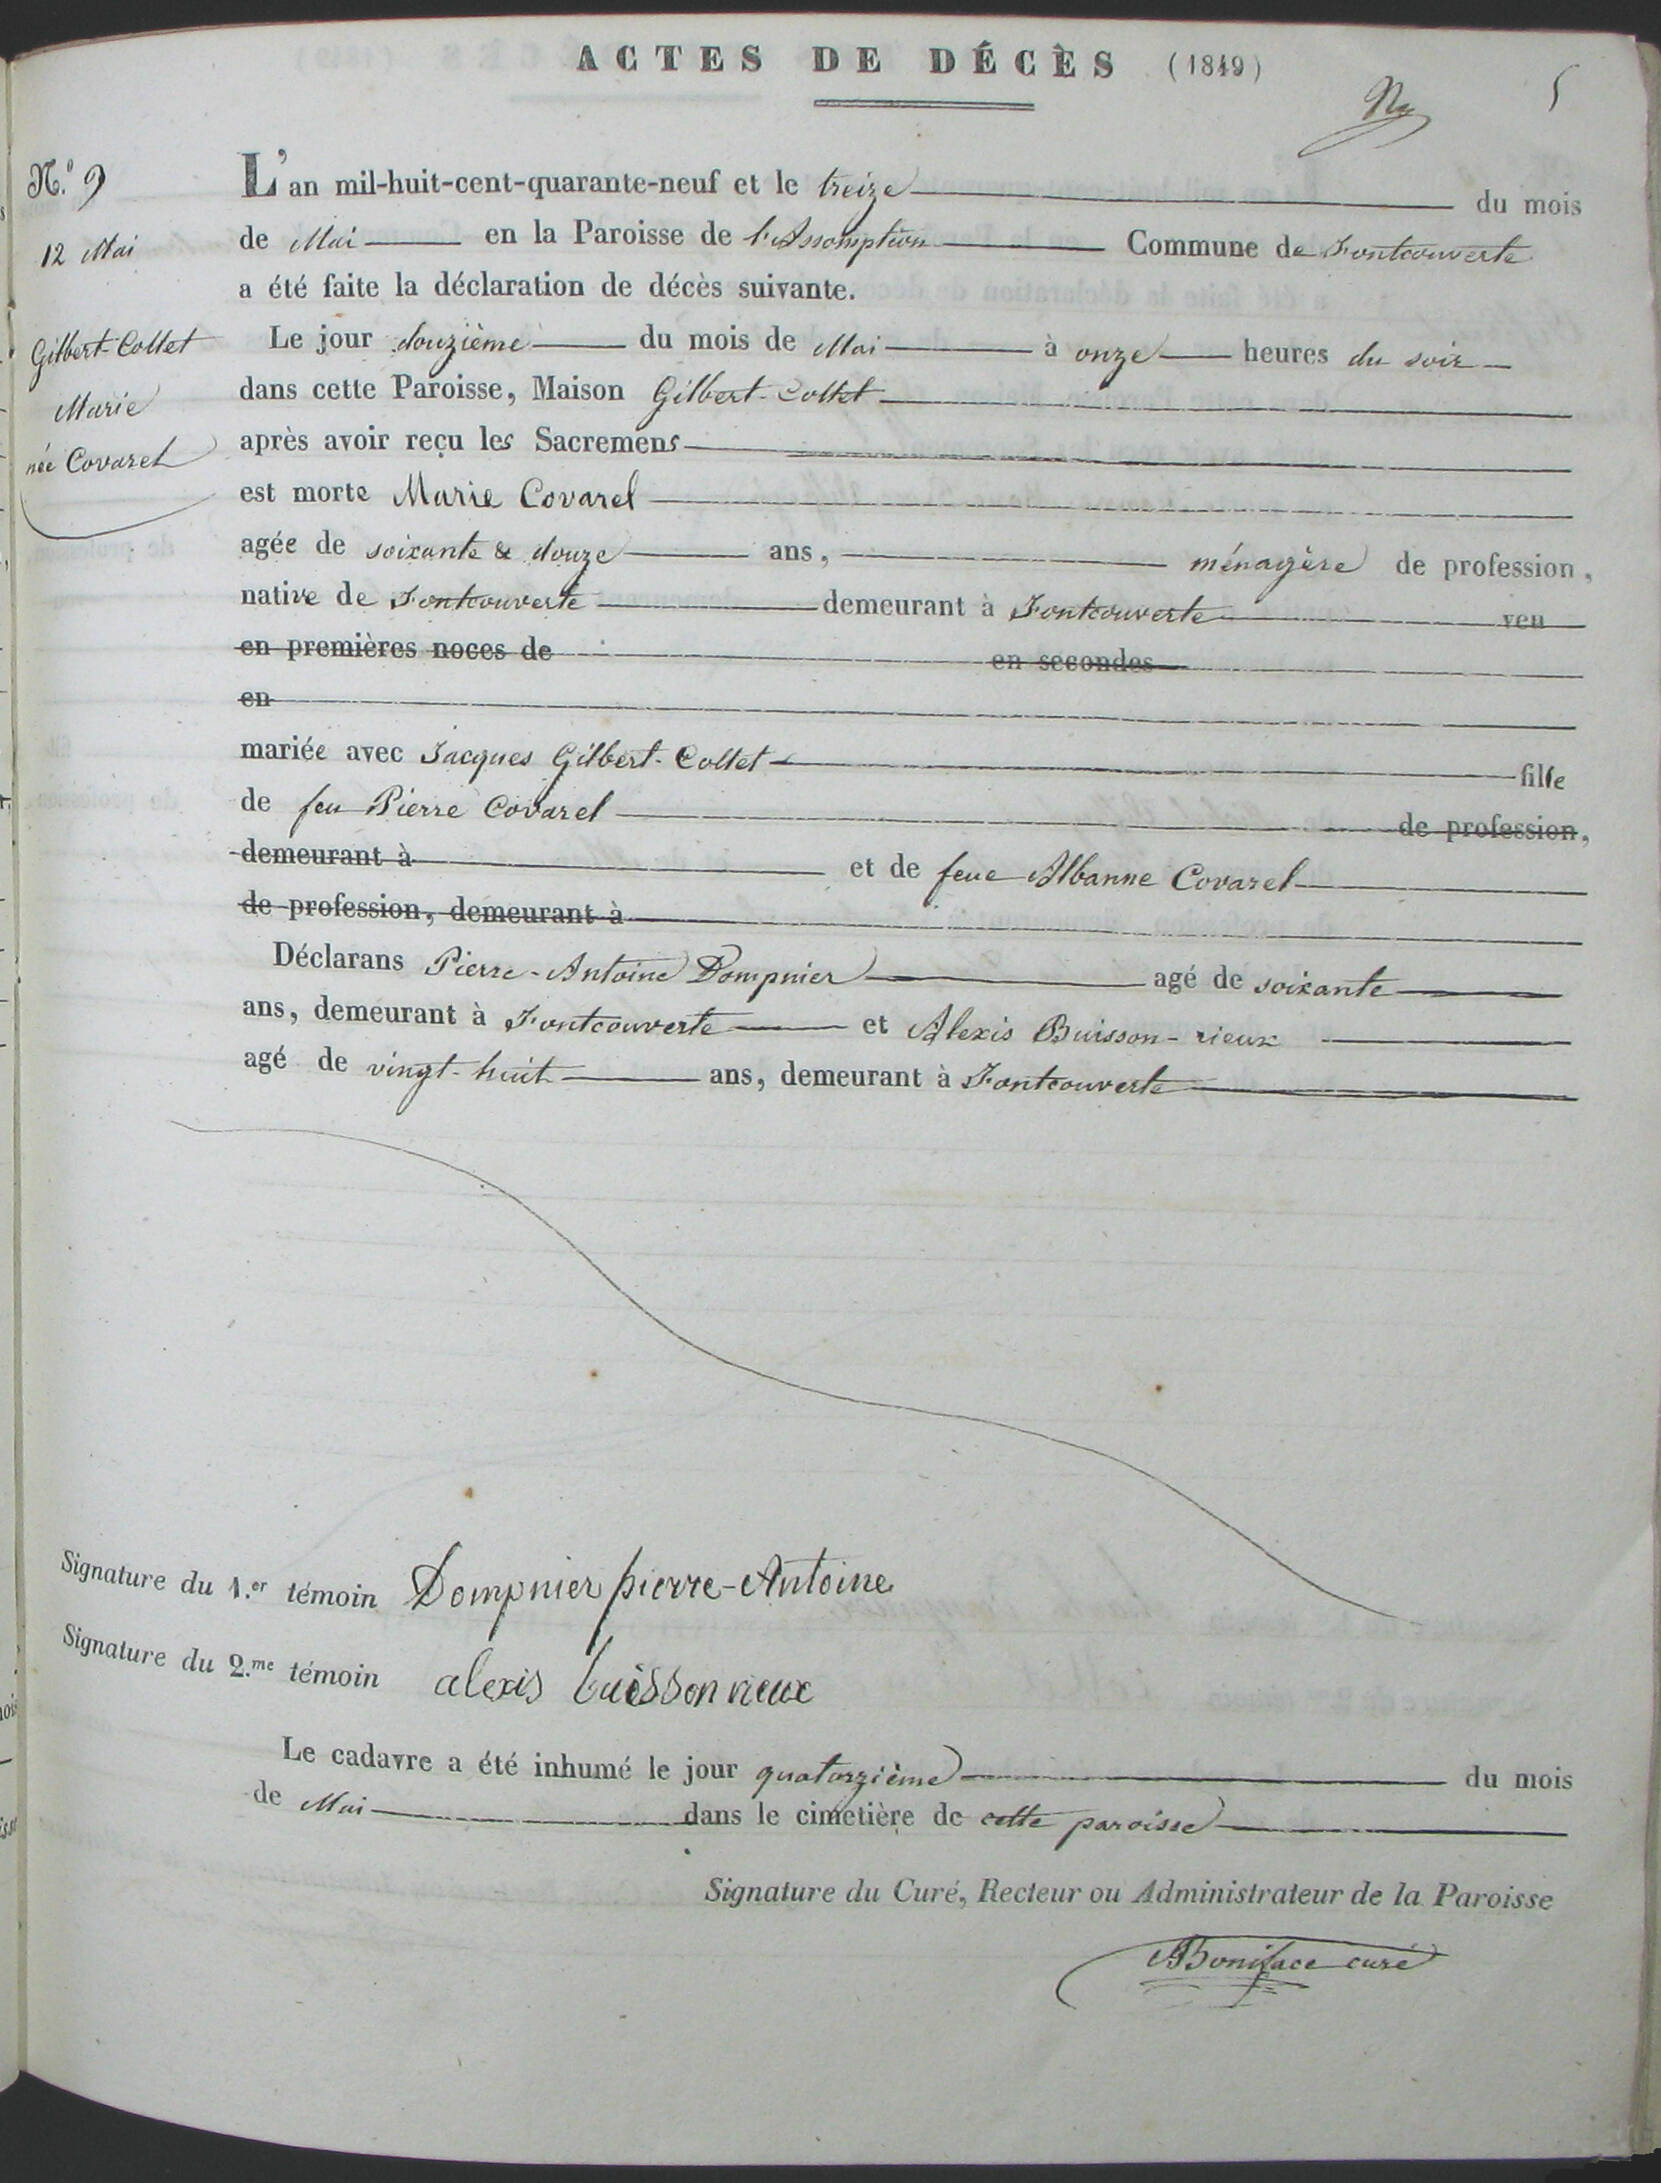 ACTES DE DÉCÈS (1849)
5
N.º 9
12 Mai
Gilbert-Collet
Marie
née Covarel
L'an mil-huit-cent-quarante-neuf et le treize du mois
de Mai en la Paroisse de l'Assomption Commune de Fontcouverte
a été faite la déclaration de décès suivante.
Le jour douzième du mois de Mai à onze heures du soir
dans cette Paroisse, Maison Gilbert-Collet
après avoir reçu les Sacremens
est morte Marie Covarel
agée de soixante & douze ans, ménagère de profession,
native de Fontcouverte demeurant à Fontcouverte veu
en premières noces de en secondes
en
mariée avec Jacques Gilbert-Collet fille
de feu Pierre Covarel de profession,
demeurant à et de feue Albanne Covarel
de profession, demeurant à
Déclarans Pierre-Antoine Dompnier agé de soixante
ans, demeurant à Fontcouverte et Alexis Buisson-rieux
agé de vingt-huit ans, demeurant à Fontcouverte
Signature du 1.er témoin Dompnier pierre-Antoine
Signature du 2.me témoin alexis buisson rieux
Le cadavre a été inhumé le jour quatorzième du mois
de Mai dans le cimetière de cette paroisse
Signature du Curé, Recteur ou Administrateur de la Paroisse
Boniface curé